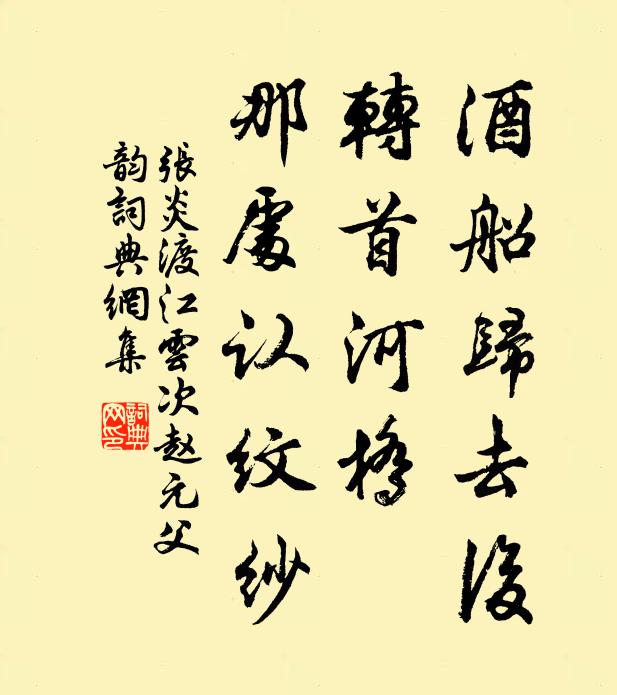 酒船歸去後
轉首河橋
那處认紋紗
張炎渡江雲次赵元父
韵詞典網集
詞典网印